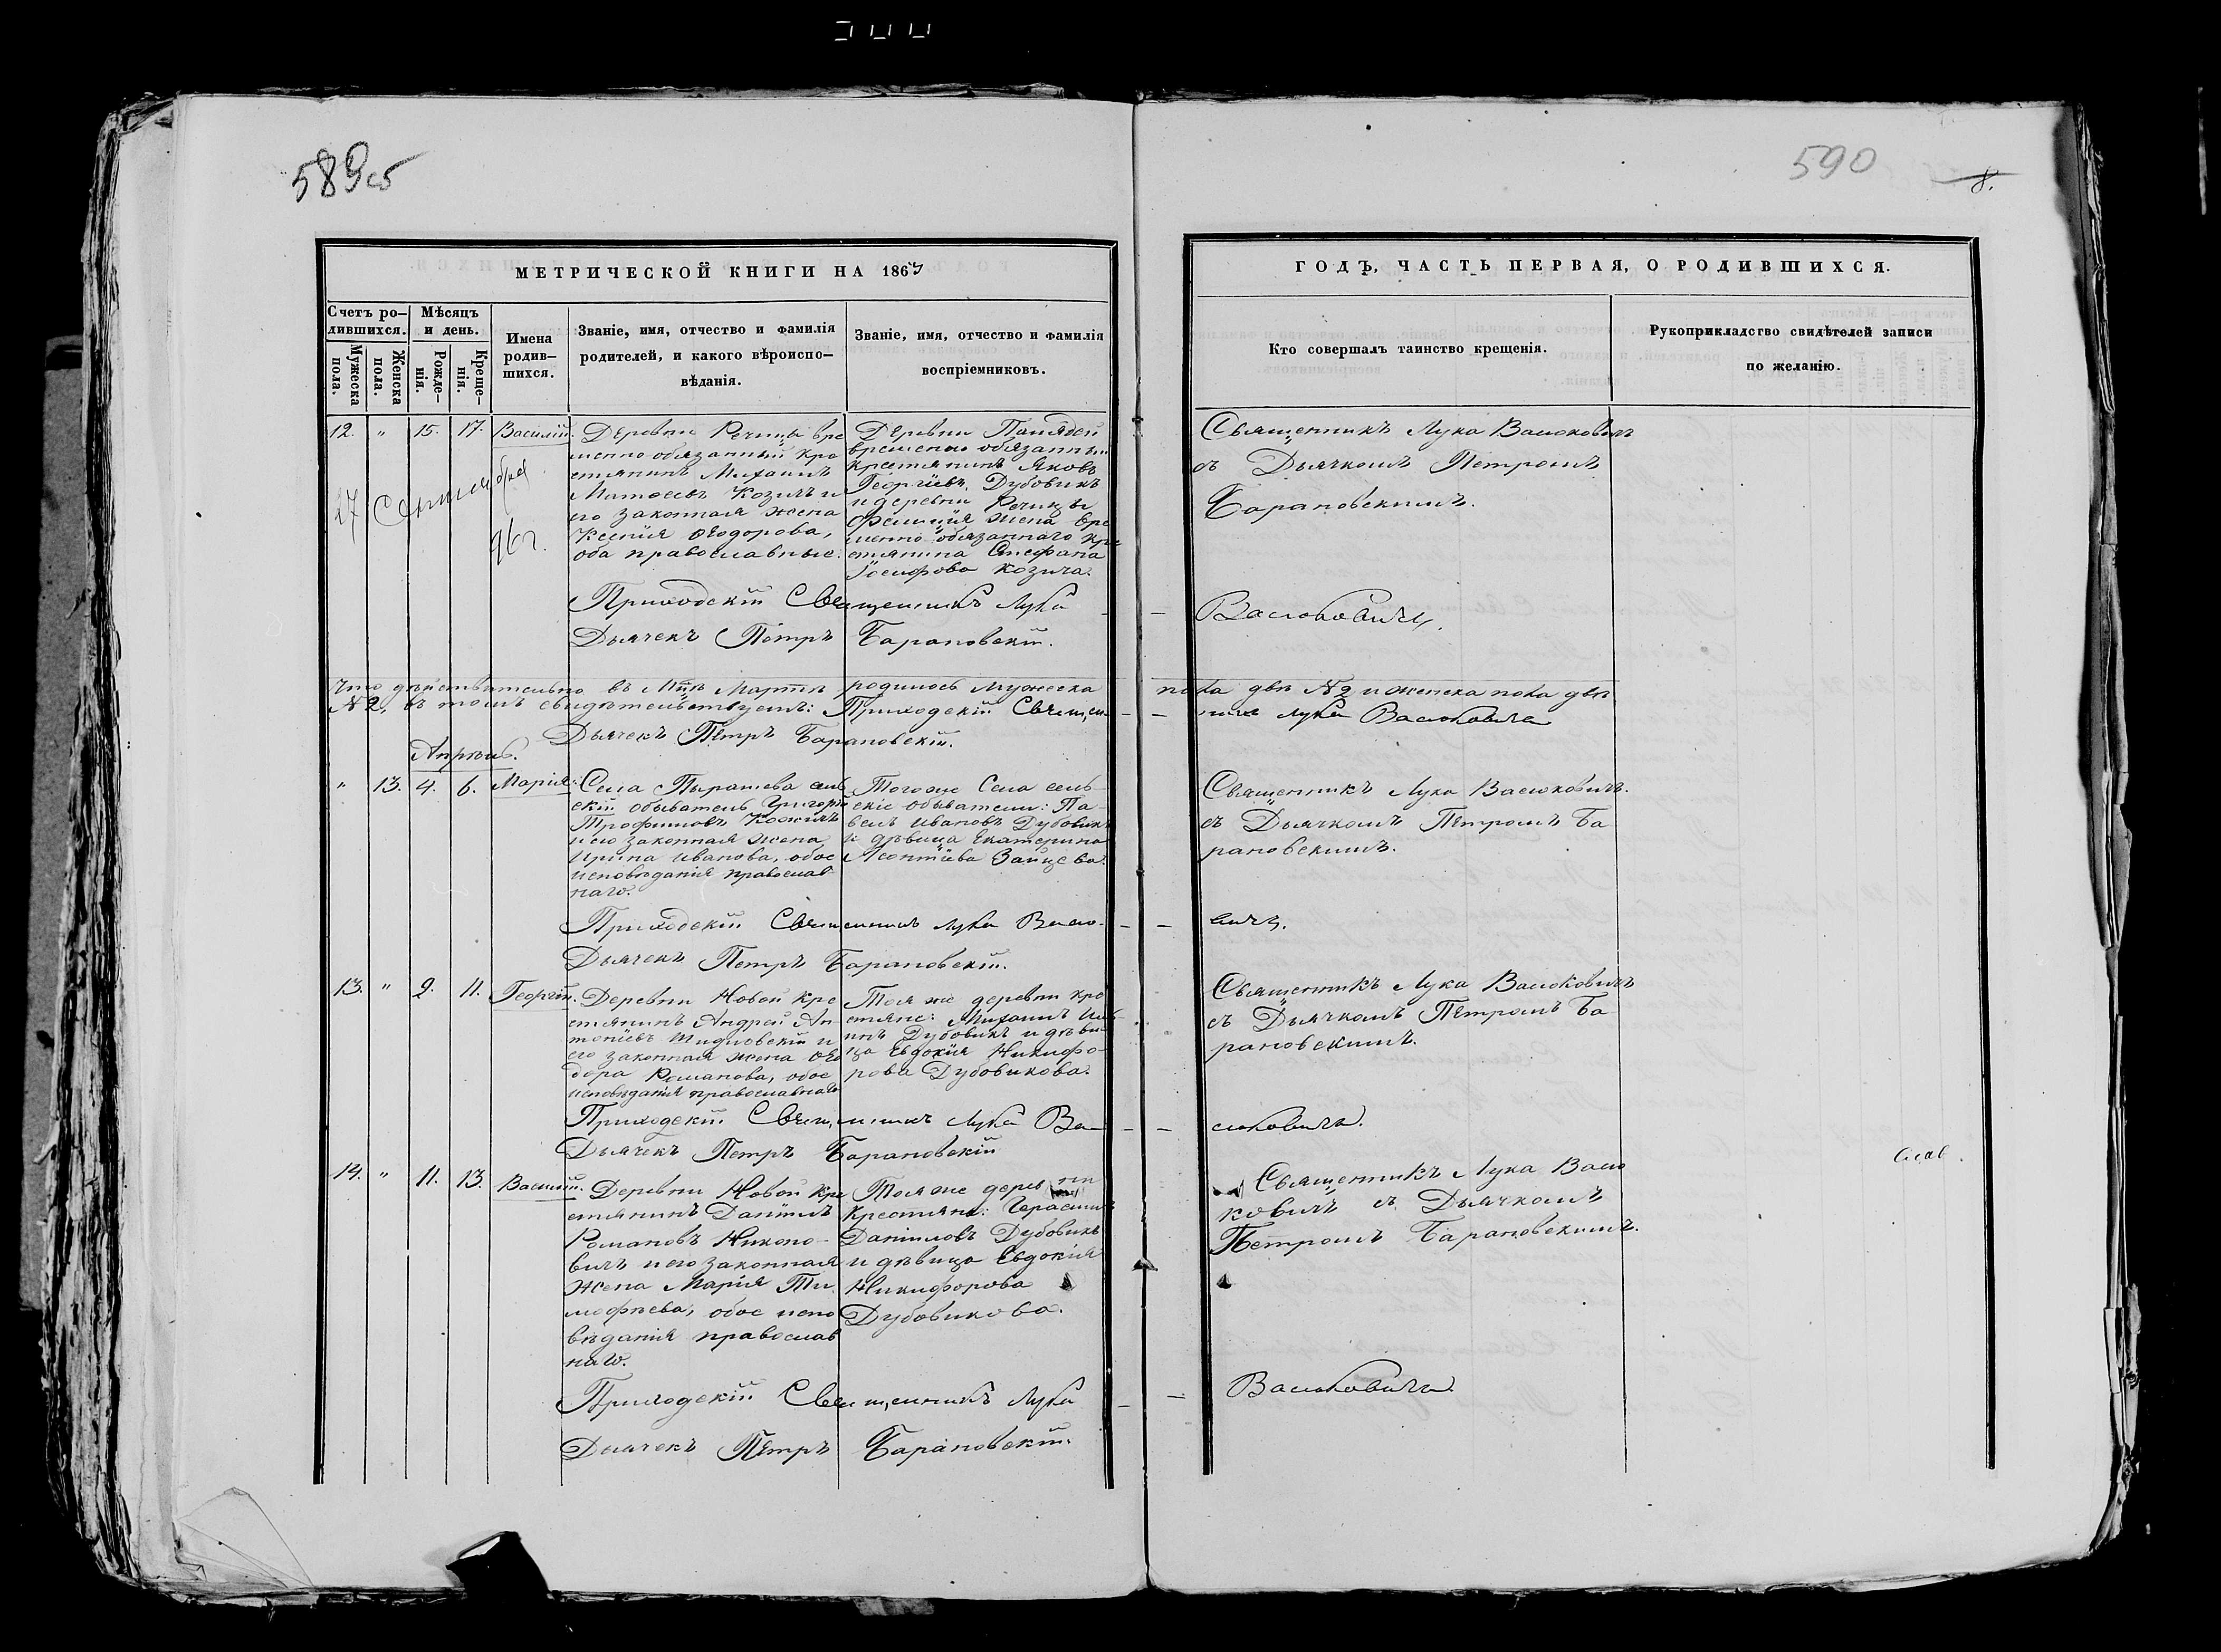 589об
590
8.
МЕТРИЧЕСКОЙ КНИГИ НА 186
ГОДЪ, ЧАСТЬ ПЕРВАЯ, О РОДИВШИХСЯ.
Счетъ ро-
дившихся.
Мужеска
пола.
Женска
пола.
Мѣсяцъ
и день.
Рожде-
нія.
Креще-
нія.
Имена
родив-
шихся.
Званіе, имя, отчество и фамилія
родителей, и какого вѣроиспо-
вѣданія.
Званіе, имя, отчество и фамилія
воспріемниковъ.
Кто совершалъ таинство крещенія.
Рукоприкладство свидѣтелей записи
по желанію.
12. " 15. 17. Василій.
27 Сентября
96 г.
Деревни Речицы вре
менно обязанный кре
стянинъ Михаилъ
Матѳеевъ Козичъ и
его законная жена
Ксенія Ѳеодорова,
оба православные.
Деревни
временно обязанный
крестянинъ Яковъ
Георгіевъ Дубовикъ
и деревни Речицы
жена вре
менно обязаннаго кре
стянина Стефана
Іосифова Козича.
Священникъ Лука Васюковичъ
съ Дьячкомъ Петромъ
Барановскимъ.
Приходскій Священникъ Лука Васюковичъ.
Дьячекъ Петръ Барановскій.
Что дѣйствительно въ М-цѣ Мартѣ родилось мужеска пола двѣ № 2 и женска пола двѣ
№ 2, въ томъ свидѣтельствуемъ: Приходскій Священникъ Лука Васюковичъ
Дьячекъ Петръ Барановскій.
Апрѣль.
" 13. 4. 6. Марія.
Села Пырашева сель
скій обыватель Григорій
Трофимовъ
и его законная жена
Ирина Иванова, обое
исповѣданія православ
наго.
Того же Села сель-
скіе обыватели: Па-
велъ Ивановъ Дубовикъ
и дѣвица Екатерина
Леонтіева Зайцева.
Священникъ Лука Васюковичъ
съ Дьячкомъ Петромъ Ба
рановскимъ.
Приходскій Священникъ Лука Васю- вичъ.
Дьячекъ Петръ Барановскій.
13. " 9. 11. Георгій.
Деревни Новой кре
стянинъ Андрей Ан-
тоніевъ Шидловскій и
его законная жена Ѳео
дора Романова, обое
исповѣданія православнаго
Тоя же деревни кре
стяне: Михаилъ
Дубовикъ и дѣви
ца Евдокія Никифо-
рова Дубовикова.
Священникъ Лука Васюковичъ
съ Дьячкомъ Петромъ Ба
рановскимъ.
Приходскій Священникъ Лука Ва- сюковичъ.
Дьячекъ Петръ Барановскій
14. " 11. 13. Василій.
Деревни Новой кре
стянинъ Даніилъ
Романовъ Никоно-
вичъ и его законная
жена Марія Ти-
моѳѣева, обое испо
вѣданія православ
наго.
Тоя же деревни
крестяне: Герасимъ
Даніиловъ Дубовикъ
и дѣвица Евдокія
Никифорова
Дубовикова.
Священникъ Лука Васю
ковичъ съ Дьячкомъ
Петромъ Барановскимъ.
Приходскій Священникъ Лука Васюковичъ.
Дьячекъ Петръ Барановскій.